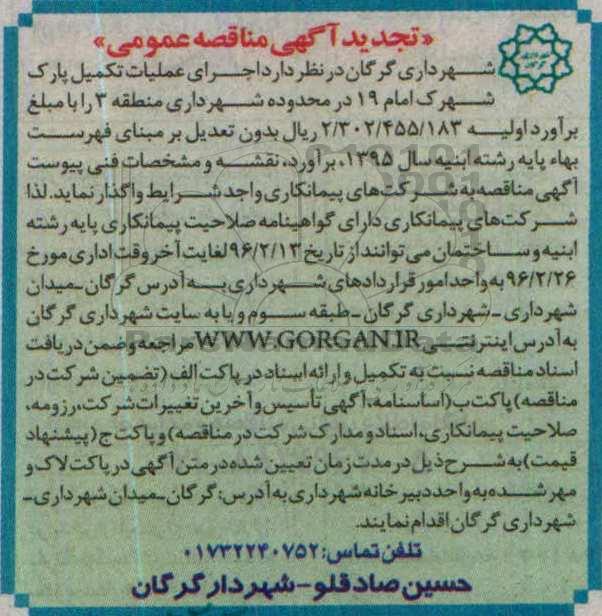 «تجدید آگهی مناقصه عمومی»
شهرداری گرگان در نظر دارد اجرای عملیات تکمیل پارک
شهرک امام ۱۹ در محدوده شهرداری منطقه ۳ را با مبلغ
برآورد اولیه ۲/۳۰۲/۴۵۵/۱۸۳ ریال بدون تعدیل بر مبنای فهرست
بهاء پایه رشته ابنیه سال ۱۳۹۵، برآورد، نقشه و مشخصات فنی پیوست
آگهی مناقصه به شرکت‌های پیمانکاری واجد شرایط واگذار نماید. لذا
شرکت‌های پیمانکاری دارای گواهینامه صلاحیت پیمانکاری پایه رشته
ابنیه و ساختمان می‌توانند از تاریخ ۹۶/۲/۱۳ لغایت آخر وقت اداری مورخ
۹۶/۲/۲۶ به واحد امور قراردادهای شهرداری به آدرس گرگان-میدان
شهرداری-شهرداری گرگان-طبقه سوم و یا به سایت شهرداری گرگان
به آدرس اینترنتی WWW.GORGAN.IR مراجعه و ضمن دریافت
اسناد مناقصه نسبت به تکمیل و ارائه اسناد در پاکت الف (تضمین شرکت در
مناقصه) پاکت ب (اساسنامه، آگهی تأسیس و آخرین تغییرات شرکت، رزومه،
صلاحیت پیمانکاری، اسناد و مدارک شرکت در مناقصه) و پاکت ج (پیشنهاد
قیمت) به شرح ذیل در مدت زمان تعیین شده در متن آگهی در پاکت لاک و
مهر شده به واحد دبیرخانه شهرداری به آدرس: گرگان-میدان شهرداری-
شهرداری گرگان اقدام نمایند.
تلفن تماس: ۰۱۷۳۲۲۴۰۷۵۲
حسین صادقلو-شهردار گرگان